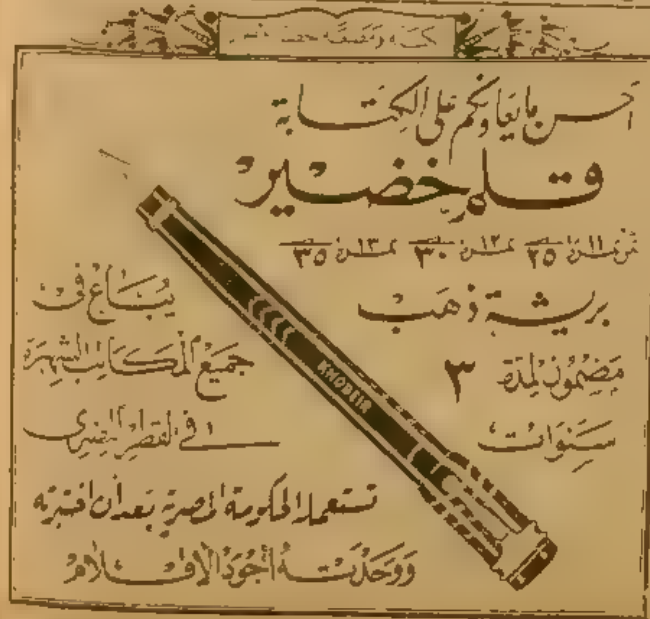 احسن ما يعاونكم على الكتابة
قلم خضير
ثمن نمرة ١١ ٢٥ نمرة ١٢ ٣٠ نمرة ١٣ ٣٥
بريشة ذهب
مضمون لمدة ٣
سنوات
يباع في
جميع المكاتب الشهيرة
في القطر المصري
KHODEIR
تستعمله الحكومة المصرية بعد أن اختبرته
ووجدته أجود الاقلام